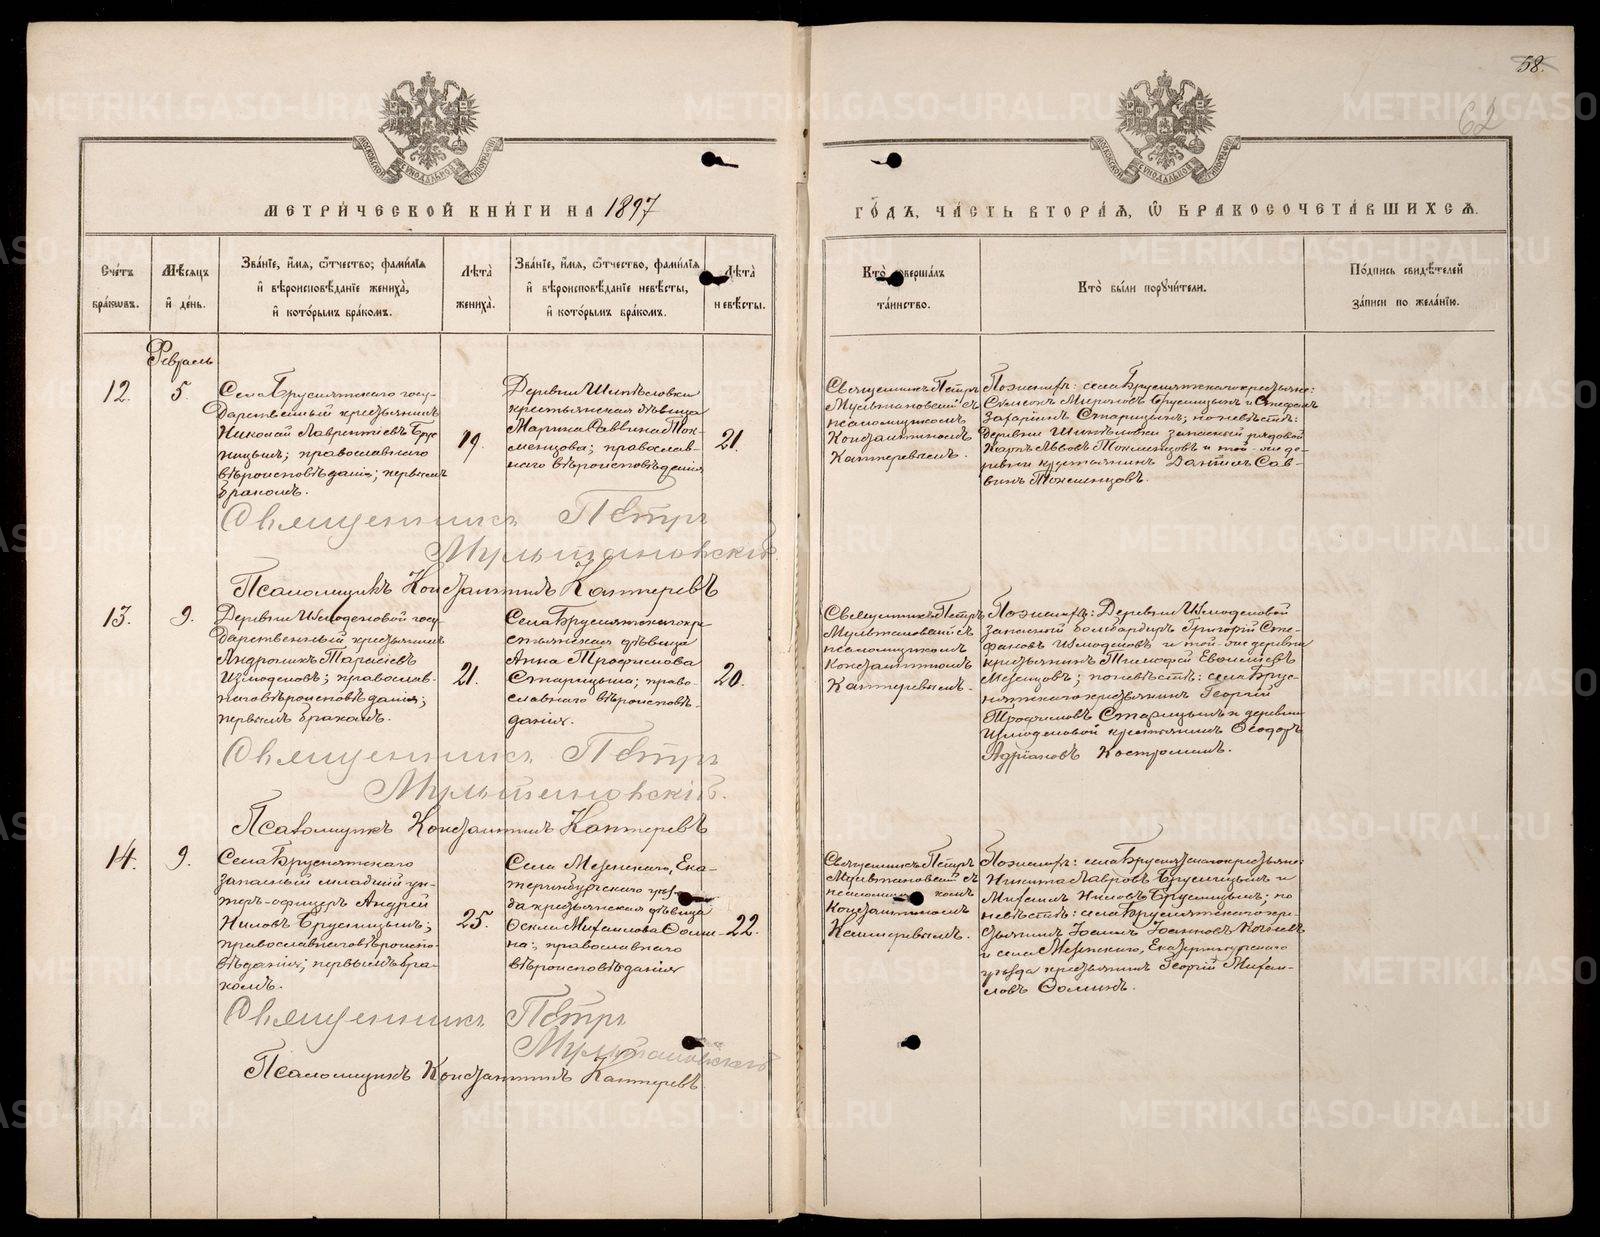 58.
62
МЕТРИ́ЧЕСКОЙ КНИ́ГИ НА 1897
ГО́ДЪ, ЧА́СТЬ ВТОРА́Я, Ѡ҆ БРАКОСОЧЕТА́ВШИХСЯ.
Сче́тъ
бра́кѡвъ.
Мѣ́сяцъ
и҆ де́нь.
Зва́нїе, и҆́мя, ѻ҆́тчество; фамѵ́лїя
и҆ вѣроисповѣ́данїе жениха̀,
и҆ кото́рымъ бра́комъ.
Лѣ́та
жениха̀.
Зва́нїе, и҆́мя, ѻ҆́тчество, фамѵ́лїя
и҆ вѣроисповѣ́данїе невѣ́сты,
и҆ кото́рымъ бра́комъ.
Лѣ́та
невѣ́сты.
Кто̀ соверша́лъ
та́инство.
Кто̀ бы́ли порꙋчи́тели.
По́дпись свидѣ́телей
за́писи по жела́нїю.
Февраль
12.
5.
Села Бруснятскаго госу-
дарственный крестьянинъ
Николай Лаврентіевъ Брус-
ницынъ; православнаго
вѣроисповѣданія; первымъ
бракомъ.
19.
Деревни Шипѣловки
крестьянская дѣвица
Марина Саввина Ток-
менцова; православ-
наго вѣроисповѣданія
21.
Священникъ Петръ
Мультановскій съ
псаломщикомъ
Константиномъ
Кантеревымъ.
По женихѣ: села Бруснятскаго крестьяне:
Симеонъ Мироновъ Брусницынъ и Стефанъ
Захаринъ Старицынъ; по невѣстѣ:
деревни Шипѣловки запасный рядовой
Карпъ Львовъ Токменцовъ и той-же де-
ревни крестьянинъ Даніилъ Сав-
винъ Токменцовъ.
Священникъ Петръ
Мультановскій
Псаломщикъ Константинъ Кантеревъ
13.
9.
Деревни Измоденовой госу-
дарственный крестьянинъ
Андроникъ Тарасіевъ
Измоденовъ; православ-
наго вѣроисповѣданія;
первымъ бракомъ.
21.
Села Бруснятскаго кре-
стьянская дѣвица
Анна Трофимова
Старицына; право-
славнаго вѣроисповѣ-
данія.
20.
Священникъ Петръ
Мультановскій съ
псаломщикомъ
Константиномъ
Кантеревымъ.
По женихѣ: Деревни Измоденовой
запасной бомбардиръ Григорій Сте-
фановъ Измоденовъ и той-же деревни
крестьянинъ Тимофей Евфиміевъ
Мезенцовъ; по невѣстѣ: села Брус-
нятскаго крестьянинъ Георгій
Трофимовъ Старицынъ и деревни
Измоденовой крестьянинъ Ѳеодоръ
Адріановъ Костроминъ.
Священникъ Петръ
Мультановскій.
Псаломщикъ Константинъ Кантеревъ
14.
9.
Села Бруснятскаго
запасный младшій ун-
теръ-офицеръ Андрей
Ниловъ Брусницынъ;
православнаго вѣроиспо-
вѣданія; первымъ бра-
комъ.
25.
Села Мезенскаго, Ека-
теринбургскаго уѣз-
да крестьянская дѣвица
Михаилова Ѳоми-
на; православнаго
вѣроисповѣданія
22.
Священникъ Петръ
Мультановскій съ
псаломщикомъ
Константиномъ
Кантеревымъ.
По женихѣ: села Бруснятскаго крестьяне:
Никита Лавровъ Брусницынъ и
Михаилъ Ниловъ Брусницынъ; по
невѣстѣ: села Бруснятскаго кре-
стьянинъ Іоаннъ Іоанновъ
и села Мезенскаго, Екатеринбургскаго
уѣзда крестьянинъ Георгій Михаи-
ловъ Ѳоминъ.
Священникъ Петръ
Мультановскій
Псаломщикъ Константинъ Кантеревъ
METRIKI.GASO-URAL.RU